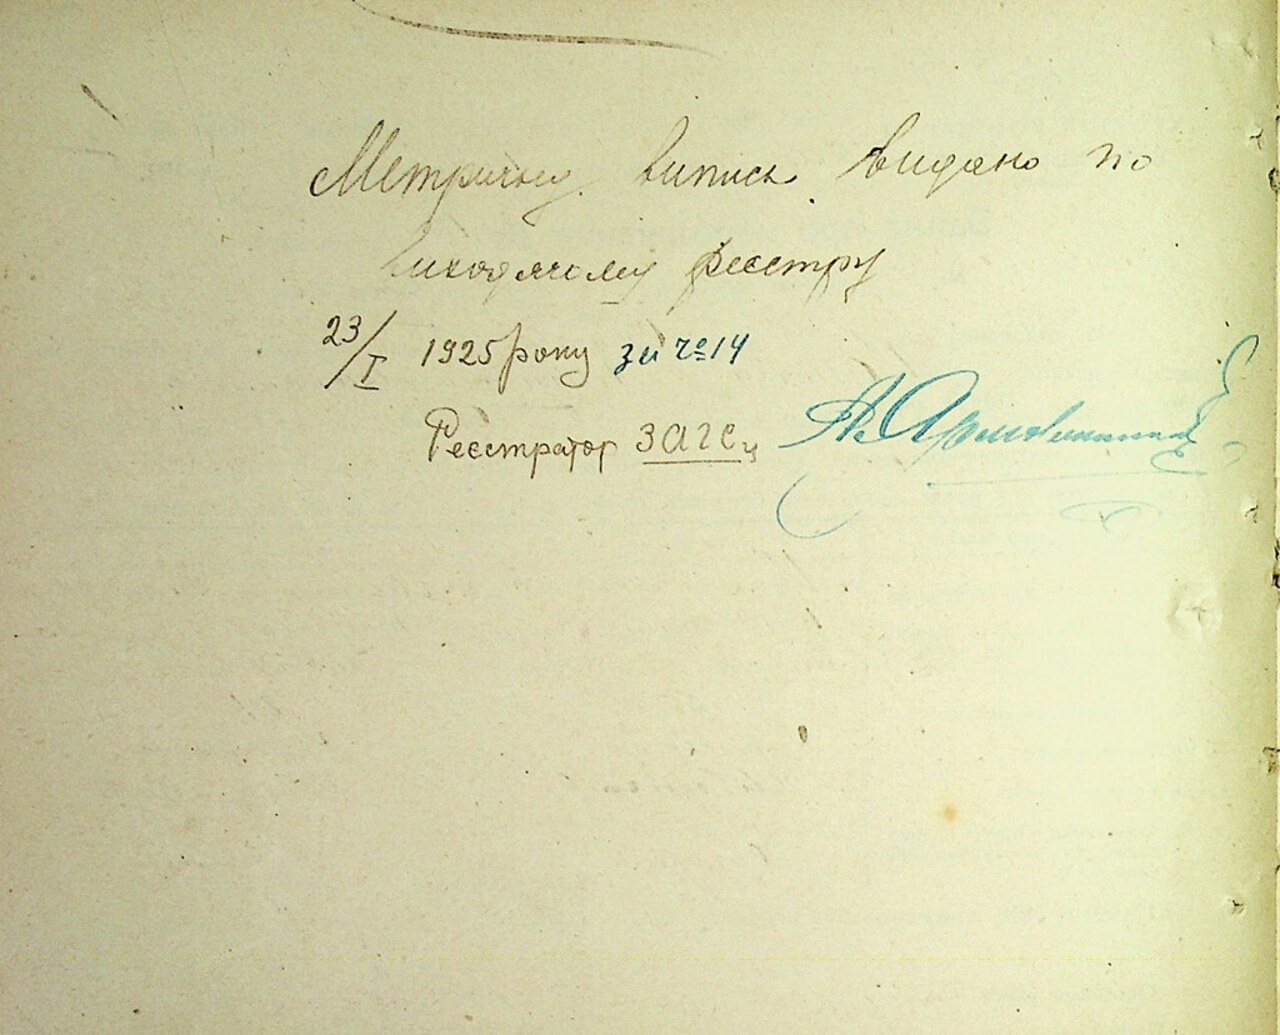 Метричну випись видано по
виходячому реєстру
23/I 1925 року за ч⁰ 14
Реєстратор ЗАГСу